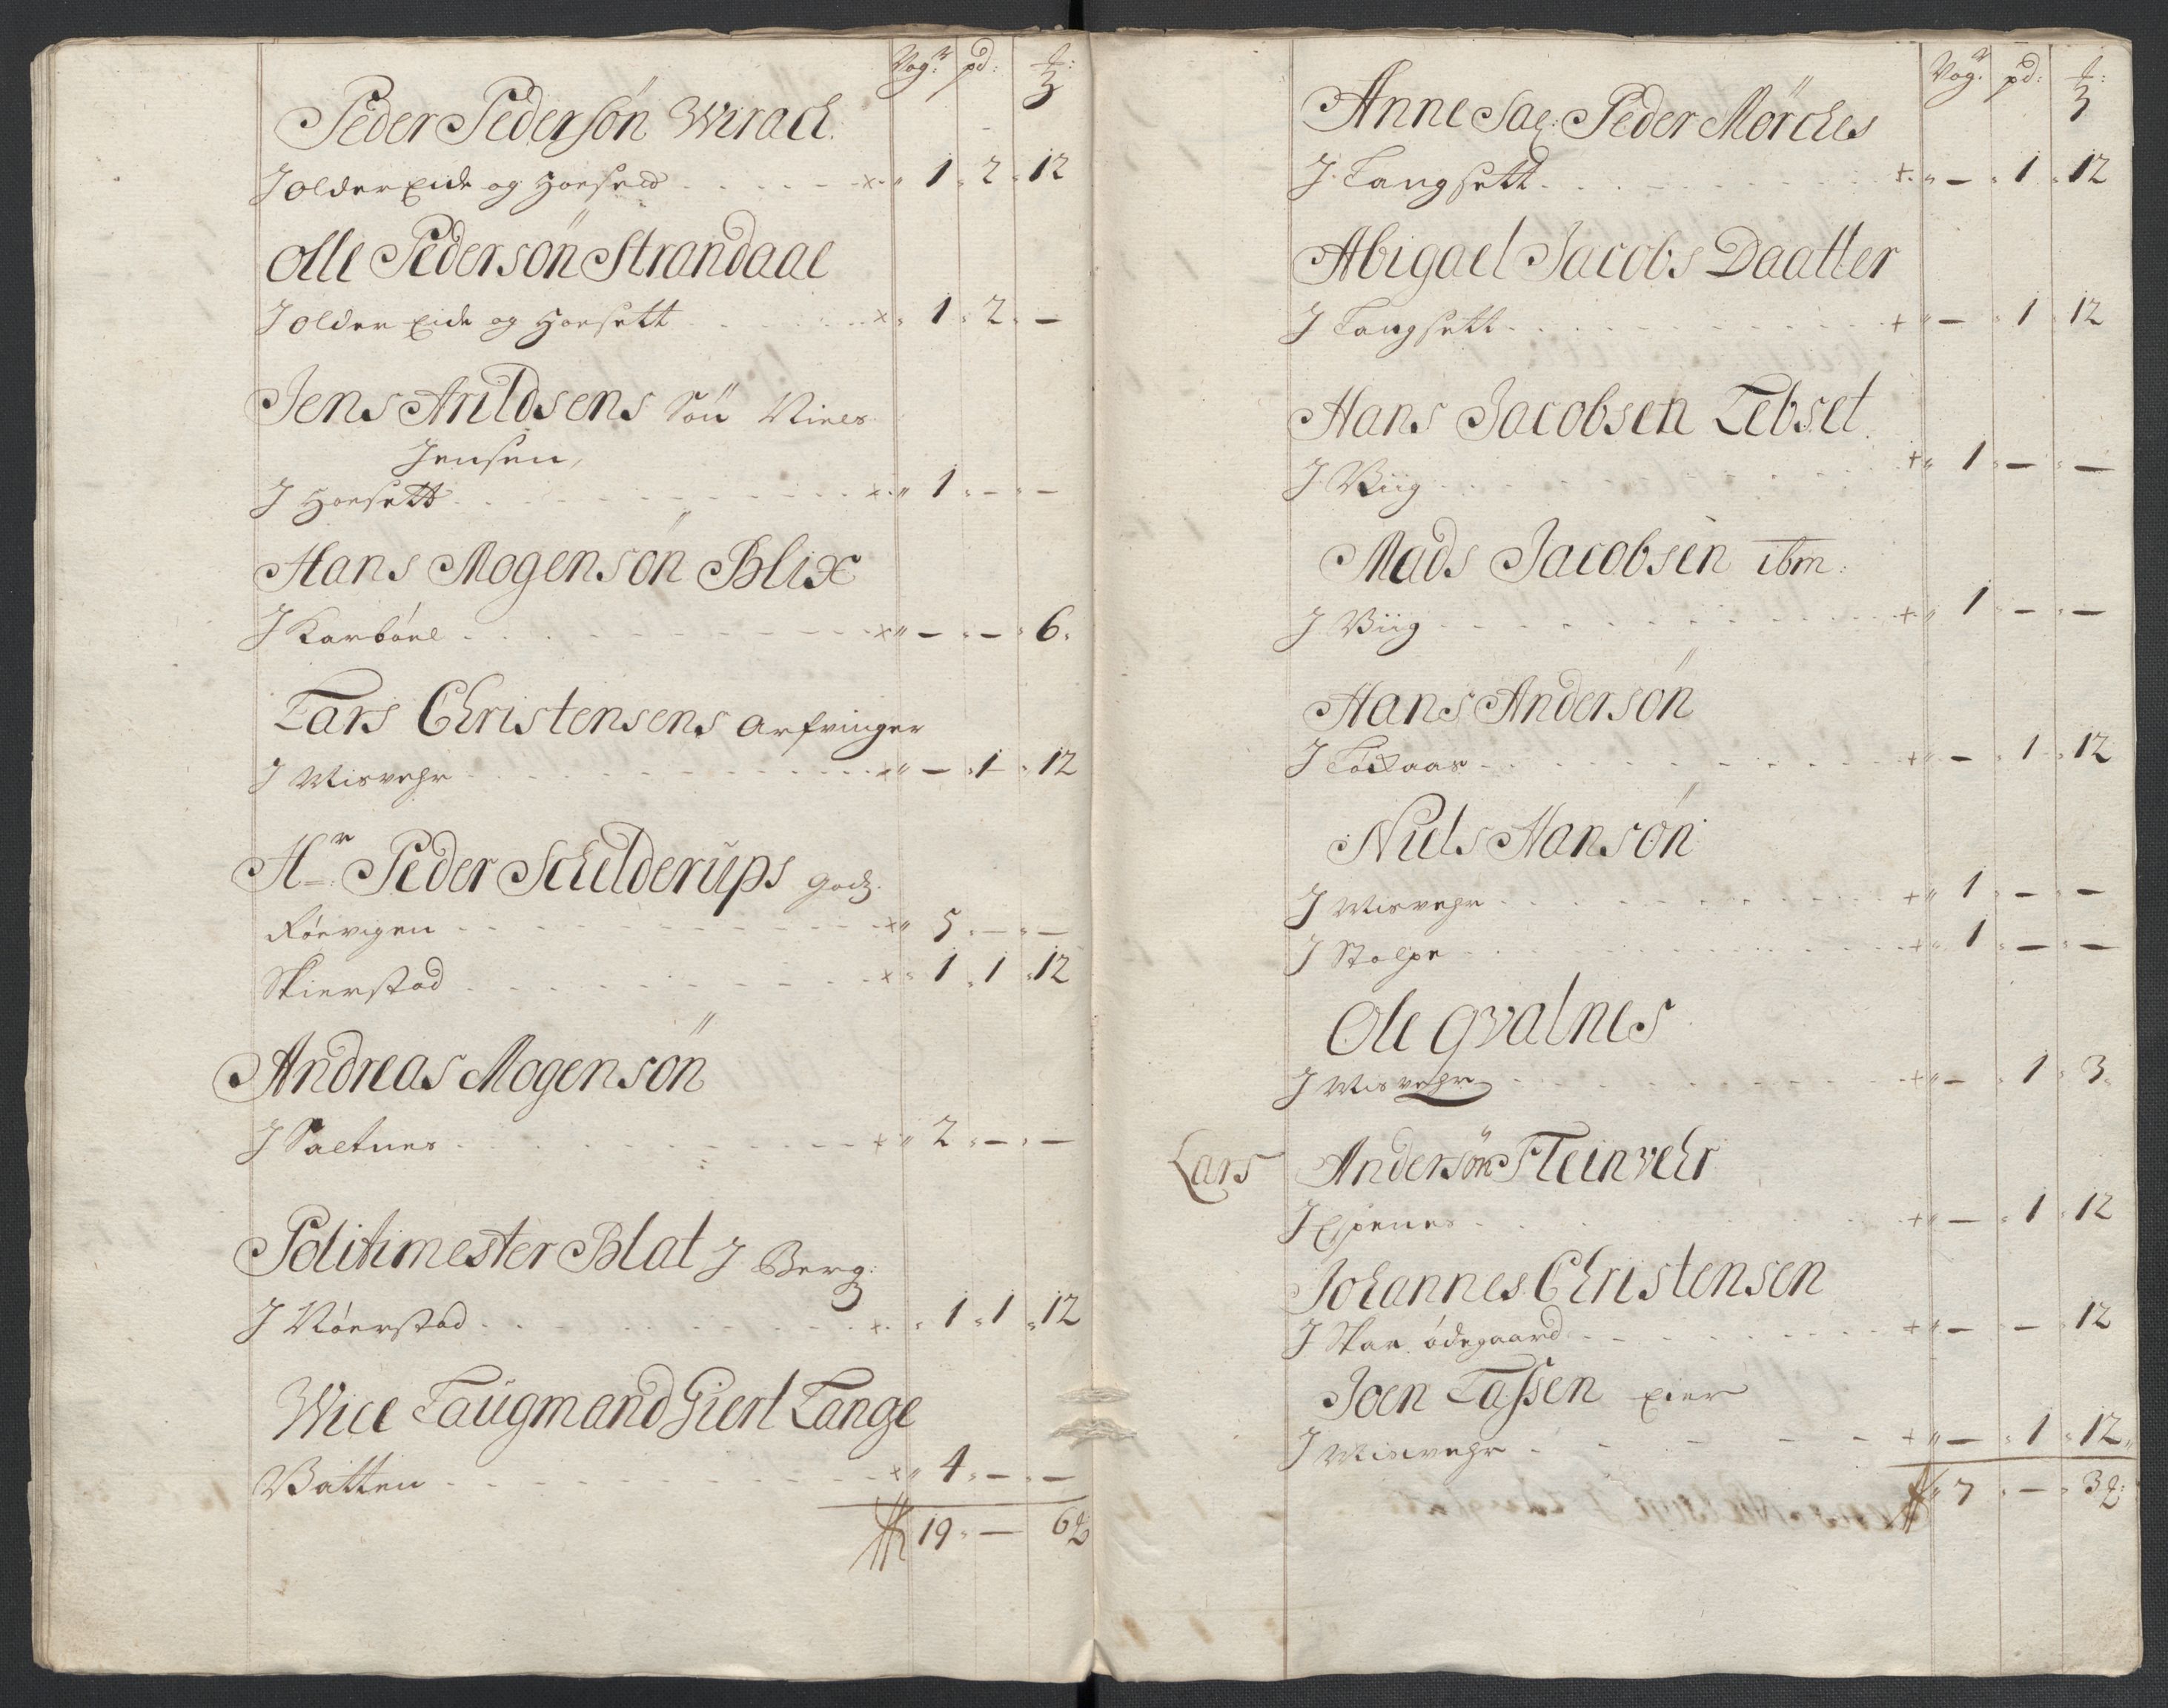 Vog:r pd: ℔:
Peder Pedersøn Wirach.
J older Eide og Horsett - 1 - 2 - 12
Olle Pedersøn Strandaae
J older Eide og Horsett - 1 - 2 - –
Jens Arildsens Søn Niels
Jensen,
J Horsett - 1 - – - –
Hans Mogensøn Blix
J Karbøel - – - – - 6.
Lars Christensens Arfvinger
J Misvehr - – - 1 - 12
Hr: Peder Schelderups godz.
Røevigen - 5 - – - –
Skierstad - 1 - 1 - 12
Andreas Mogensøn
J Saltnes - 2 - – - –
Politimester Blat J Berg:
J Nøerstad - 1 - 1 - 12
Wice Laugmand Giert Lange
Vatten - 4 - – - –
19 - – 6 ℔
Vog:r pd: ℔:
Anne Sal: Peder Mørches
J Langsett - – - 1 - 12
Abigael Jacobs Daatter
J Langsett - – - 1 - 12
Hans Jacobsen Lebset
J Viig - 1 - – - –
Mads Jacobsen ibm:
J Viig - 1 - – - –
Hans Andersøn
J - – - 1 - 12
Niels Hansøn
J Misvehr - 1 - – - –
J Stolpe - 1 - – - –
Ole Gvalnes
J Misvehr - – - 1 - 3.
Lars Andersøn Fleinvehr
J Espenes - – - 1 - 12
Johannes Christensen
J Skar ødegaard - – - – - 12
Joen Lassen Eier
J Misvehr - – - 1 - 12
7 - – - 3 ℔: